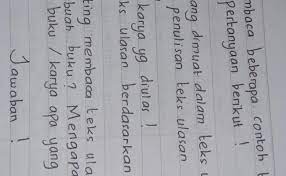 mbaca beberapa contoh
pertanyaan berikut !
ang dimuat dalam teks u
penulisan teks ulasan
karya yg diulas !
ks ulasan berdasarkan
ting membaca teks ula
buah buku? Mengapa
buku / karya apa yang
Jawaban !